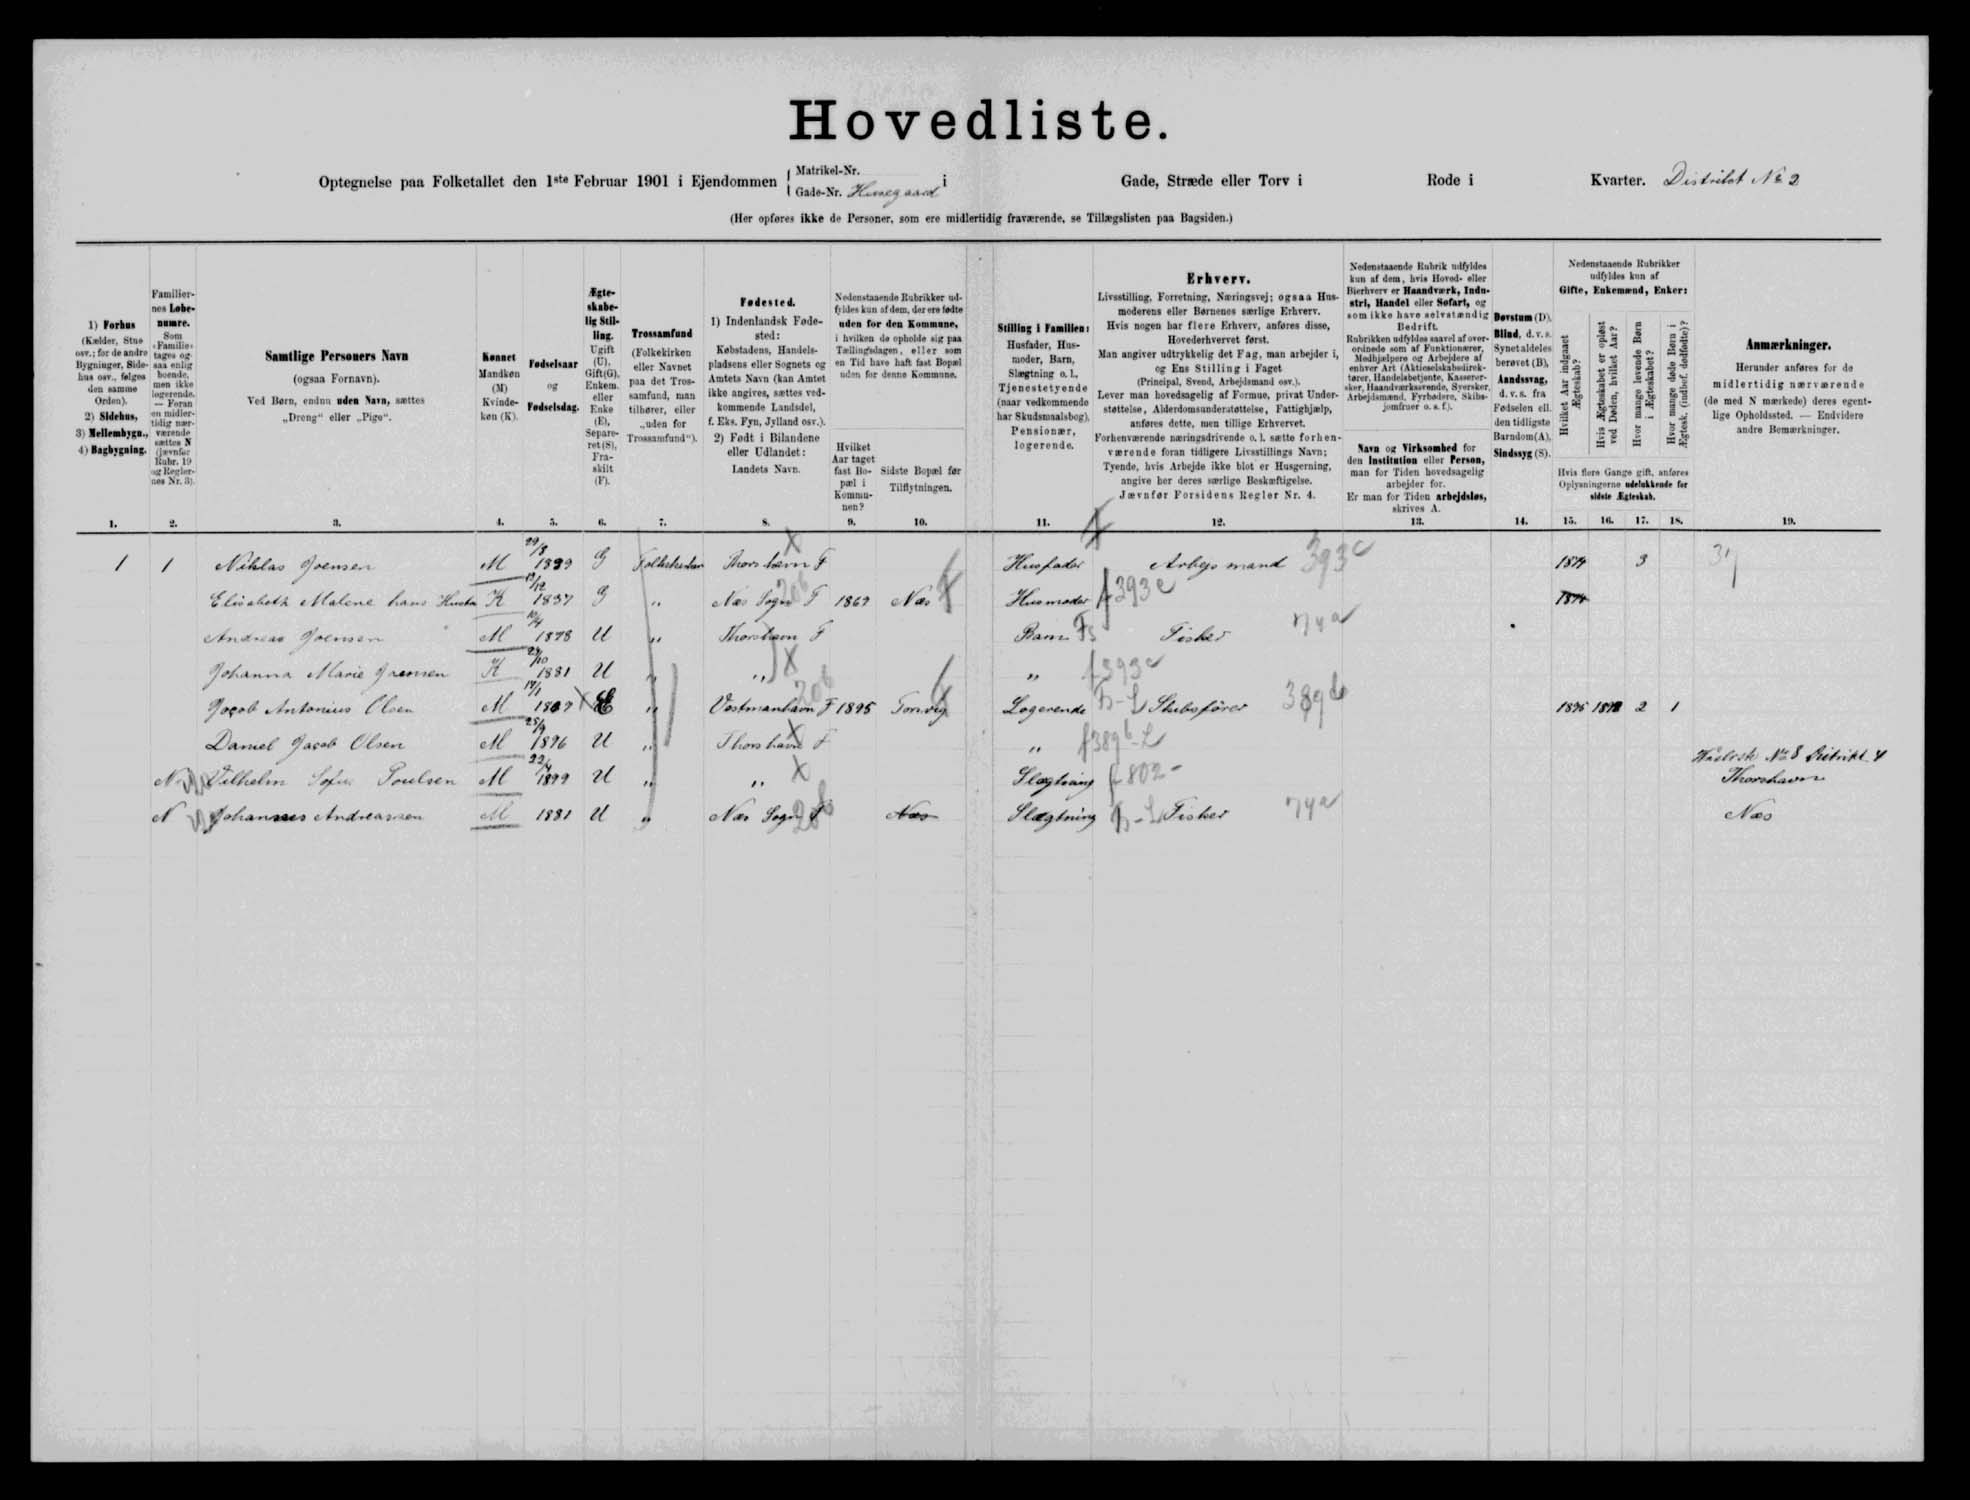 Hovedliste.
Optegnelse paa Folketallet den 1ste Februar 1901 i Ejendommen { Matrikel-Nr. Gade-Nr. Husegaard i Gade, Stræde eller Torv i Rode i Kvarter. Distrikt No 2
(Her opføres ikke de Personer, som ere midlertidig fraværende, se Tillægslisten paa Bagsiden.)
1) Forhus
(Kælder, Stue
osv.; for de andre
Bygninger, Side-
hus osv., følges
den samme
Orden).
2) Sidehus,
3) Mellembygn.,
4) Bagbygning.
Familier-
nes Løbe-
numre.
Som
"Familie"
tages og-
saa enlig
boende,
men ikke
logerende.
— Foran
en midler-
tidig nær-
værende
sættes N
(jævnfør
Rubr. 19
og Regler-
nes Nr. 3).
Samtlige Personers Navn
(ogsaa Fornavn).
Ved Børn, endnu uden Navn, sættes
„Dreng" eller „Pige".
Kønnet
Mandkøn
(M)
Kvinde-
køn (K).
Fødselsaar
og
Fødselsdag.
Ægte-
skabe-
lig Stil-
ling.
Ugift
(U),
Gift(G),
Enkem.
eller
Enke
(E),
Separe-
ret (S),
Fra-
skilt
(F).
Trossamfund
(Folkekirken
eller Navnet
paa det Tros-
samfund, man
tilhører, eller
„uden for
Trossamfund").
Fødested.
1) Indenlandsk Føde-
sted:
Købstadens, Handels-
pladsens eller Sognets og
Amtets Navn (kan Amtet
ikke angives, sættes ved-
kommende Landsdel,
f. Eks. Fyn, Jylland osv.).
2) Født i Bilandene
eller Udlandet:
Landets Navn.
Nedenstaaende Rubrikker ud-
fyldes kun af dem, der ere fødte
uden for den Kommune,
i hvilken de opholde sig paa
Tællingsdagen, eller som
en Tid have haft fast Bopæl
uden for denne Kommune.
Hvilket
Aar taget
fast Bo-
pæl i
Kommu-
nen?
Sidste Bopæl før
Tilflytningen.
Stilling i Familien:
Husfader, Hus-
moder, Barn,
Slægtning o. l.,
Tjenestetyende
(naar vedkommende
har Skudsmaalsbog),
Pensionær,
logerende.
Erhverv.
Livsstilling, Forretning, Næringsvej; ogsaa Hus-
moderens eller Børnenes særlige Erhverv.
Hvis nogen har flere Erhverv, anføres disse,
Hovederhvervet først.
Man angiver udtrykkelig det Fag, man arbejder i,
og Ens Stilling i Faget
(Principal, Svend, Arbejdsmand osv.).
Lever man hovedsagelig af Formue, privat Under-
støttelse, Alderdomsunderstøttelse, Fattighjælp,
anføres dette, men tillige Erhvervet.
Forhenværende næringsdrivende o. l. sætte forhen-
værende foran tidligere Livsstillings Navn;
Tyende, hvis Arbejde ikke blot er Husgerning,
angive her deres særlige Beskæftigelse.
Jævnfør Forsidens Regler Nr. 4.
Nedenstaaende Rubrik udfyldes
kun af dem, hvis Hoved- eller
Bierhverv er Haandværk, Indu-
stri, Handel eller Søfart, og
som ikke have selvstændig
Bedrift.
Rubrikken udfyldes saavel af over-
ordnede som af Funktionærer,
Medhjælpere og Arbejdere af
enhver Art (Aktieselskabsdirek-
tører, Handelsbetjente, Kasserer-
sker, Haandværkssvende, Syersker,
Arbejdsmænd, Fyrbødere, Skibs-
jomfruer o. s. f.).
Navn og Virksomhed for
den Institution eller Person,
man for Tiden hovedsagelig
arbejder for.
Er man for Tiden arbejdsløs,
skrives A.
Døvstum (D),
Blind, d. v. s.
Synet aldeles
berøvet (B),
Aandssvag,
d. v. s. fra
Fødselen ell.
den tidligste
Barndom(A),
Sindssyg (S).
Nedenstaaende Rubrikker
udfyldes kun af
Gifte, Enkemænd, Enker:
Hvilket Aar indgaaet
Ægteskab?
Hvis Ægteskabet er opløst
ved Døden, hvilket Aar?
Hvor mange levende Børn
i Ægteskabet?
Hvor mange døde Børn i
Ægtesk. (indbef. dødfødte)?
Hvis flere Gange gift, anføres
Oplysningerne udelukkende for
sidste Ægteskab.
Anmærkninger.
Herunder anføres for de
midlertidig nærværende
(de med N mærkede) deres egent-
lige Opholdssted. — Endvidere
andre Bemærkninger.
1. 2. 3. 4. 5. 6. 7. 8. 9. 10. 11. 12. 13. 14. 15. 16. 17. 18. 19.
1 1 Niklas Joensen M 29/8 G Folkekirken Thorshavn F Husfader Arbejsmand 393c 1874 3
Elisabeth Malene hans Hustru K 1837 G „ Næs Sogn F 1869 Næs Husmoder 393c 1874
Andreas Joensen M 1878 U „ Thorshavn F Barn Fisker 74a
Johanna Marie Joensen K 1881 U „ „ „ 393c
Jacob Antonius Olsen M E „ Vestmanhavn F 1895 Logerende Skibsfører 389b 2 1
Daniel Jacob Olsen M 1896 U „ Thorshavn F „ 389b-L
N Vilhelm Sofus Poulsen M 1899 U „ „ Slægtning 802 No 8 Distrikt 4 Thorshavn
N Johannes Andreassen M 1881 U „ Næs Sogn F Næs Slægtning Fisker 74a Næs